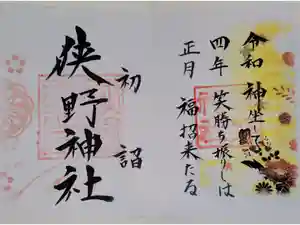 令和
四年
正月
神坐して
笑勝ち振りしは
福招来たる
初詣
狹野神社